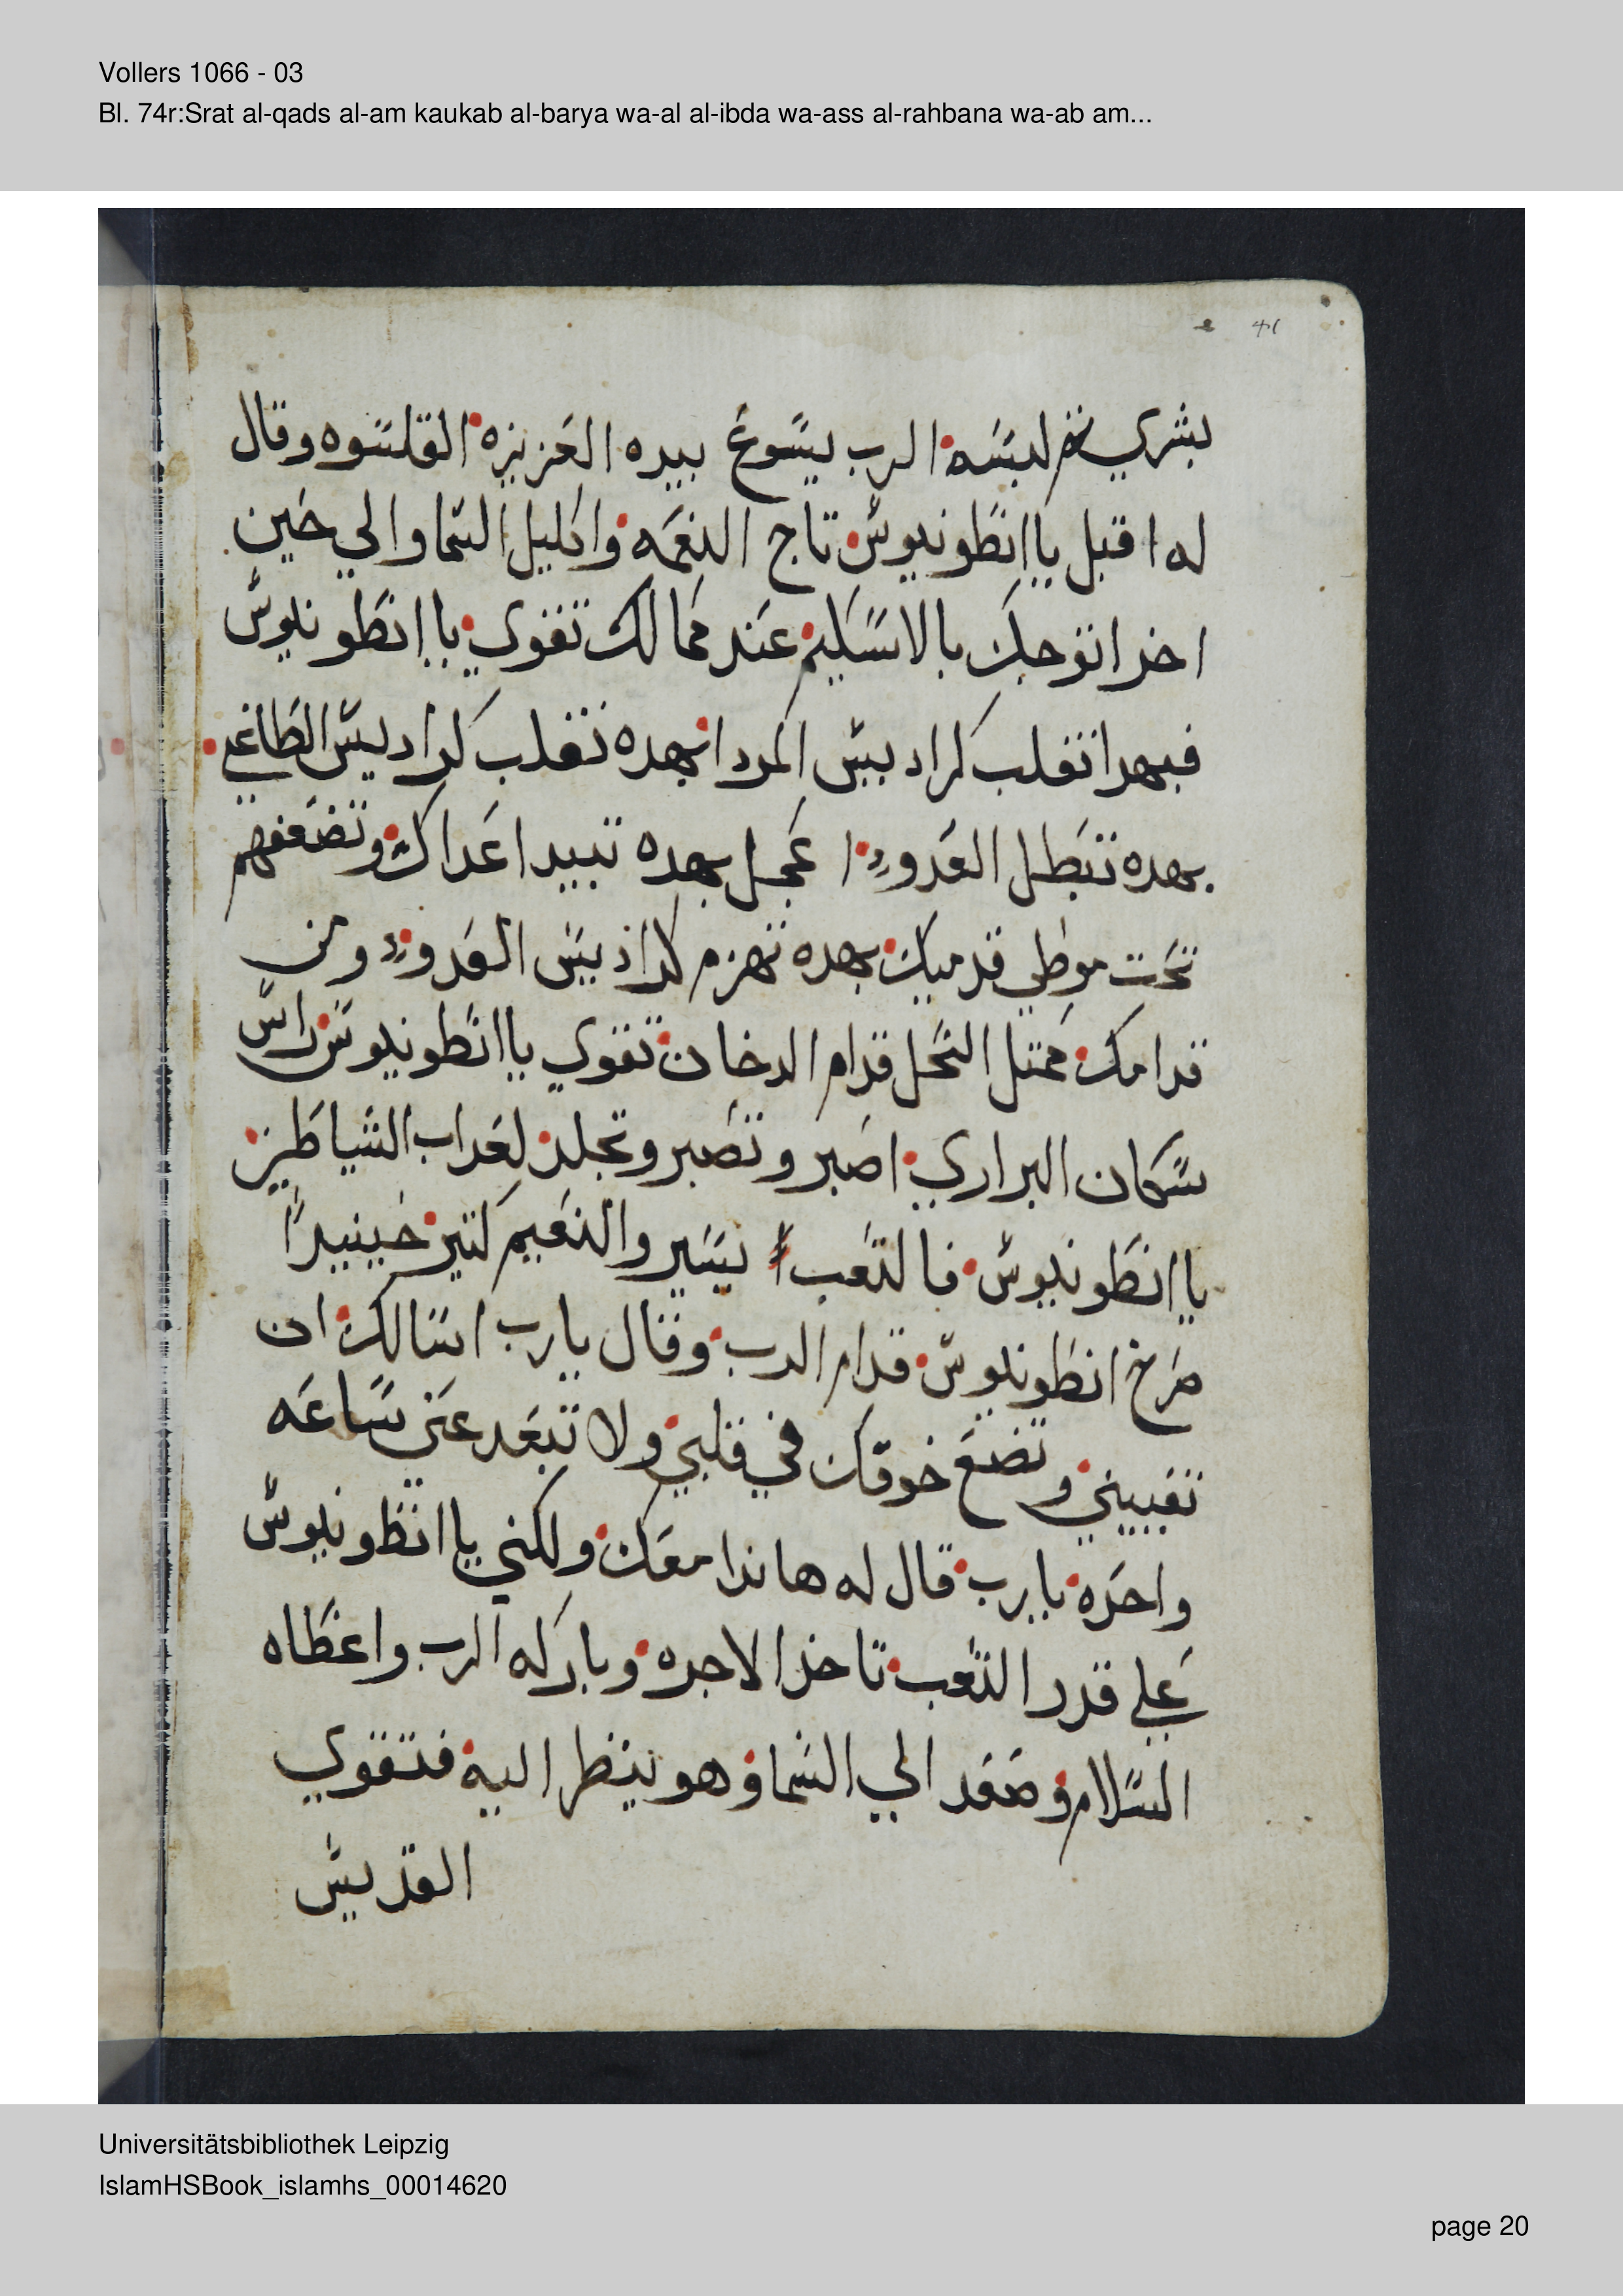 Vollers 1066 - 03
Bl. 74r:Srat al-qads al-am kaukab al-barya wa-al al-ibda wa-ass al-rahbana wa-ab am...
بشري ثم لبسه الرب يسوع بيده العزيزه القلسوه وقال
له اقبل يا انطونيوس تاج النعمه واكليل السما والي حين
اخر اتوجك بالاسكيم عند ممالك تقوي يا انطونيوس
فبهدا تقلب كراديس المرده بهده تقلب كراديس الطاغي
بهده تبطل العدو عجل بهده تبيد اعداك وتضعفهم
تحت موطي قدميك بهده تهزم كراديس العدو
قدامك ممثل النحل قدام الدخان تقوي يا انطونيوس راس
سكان البراري اصبر وتصبر وتجلد لعداب الشياطين
يا انطونيوس فالتعب يسير والنعيم كتير حينيدا
صرخ انطونيوس قدام الرب وقال يارب اسالك ان
تقبيني وتضع خوفك في قلبي ولا تبعد عني ساعه
واحده يارب قال له هاندا معك ولكني يا انطونيوس
علي قدر التعب تاخد الاجره وباركه الرب واعطاه
السلام وصعد الي السما وهو ينظر اليه فتقوي
القديس
Universitätsbibliothek Leipzig
IslamHSBook_islamhs_00014620
page 20